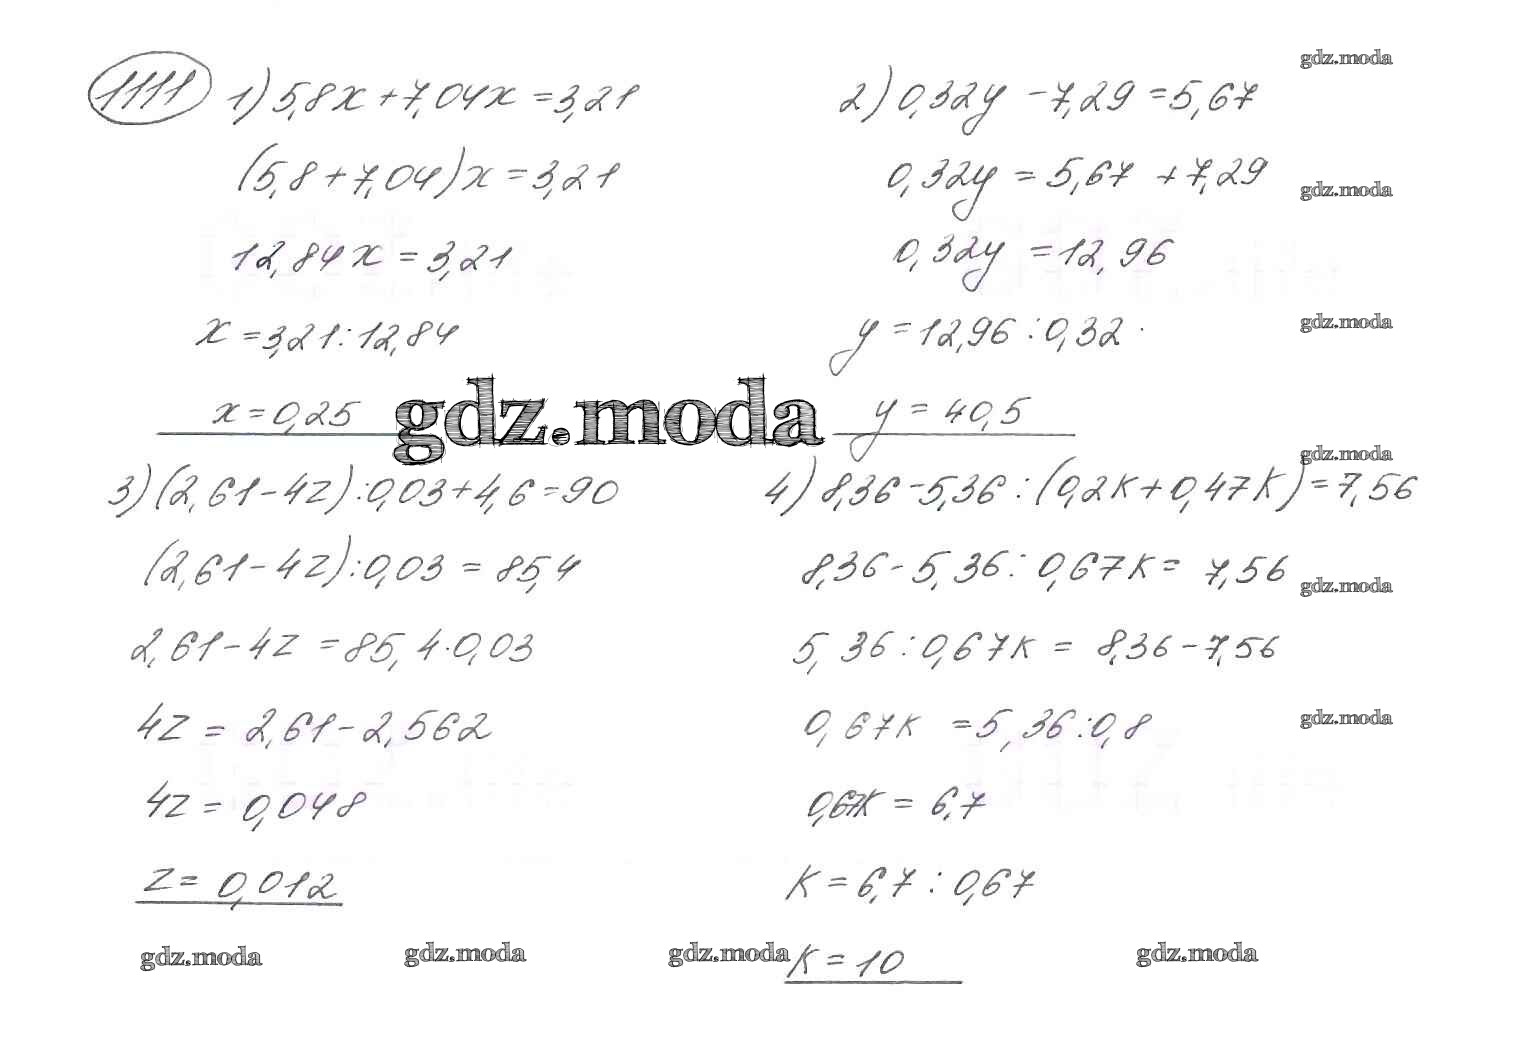 1111
1) 5,8x + 7,04x = 3,21
(5,8 + 7,04)x = 3,21
12,84x = 3,21
x = 3,21 : 12,84
x = 0,25
2) 0,32y - 7,29 = 5,67
0,32y = 5,67 + 7,29
0,32y = 12,96
y = 12,96 : 0,32
y = 40,5
gdz.moda
3) (2,61 - 4z) : 0,03 + 4,6 = 90
(2,61 - 4z) : 0,03 = 85,4
2,61 - 4z = 85,4 · 0,03
4z = 2,61 - 2,562
4z = 0,048
z = 0,012
4) 8,36 - 5,36 : (0,2K + 0,47K) = 7,56
8,36 - 5,36 : 0,67K = 7,56
5,36 : 0,67K = 8,36 - 7,56
0,67K = 5,36 : 0,8
0,67K = 6,7
K = 6,7 : 0,67
K = 10
gdz.moda
gdz.moda
gdz.moda
gdz.moda
gdz.moda
gdz.moda
gdz.moda gdz.moda gdz.moda gdz.moda